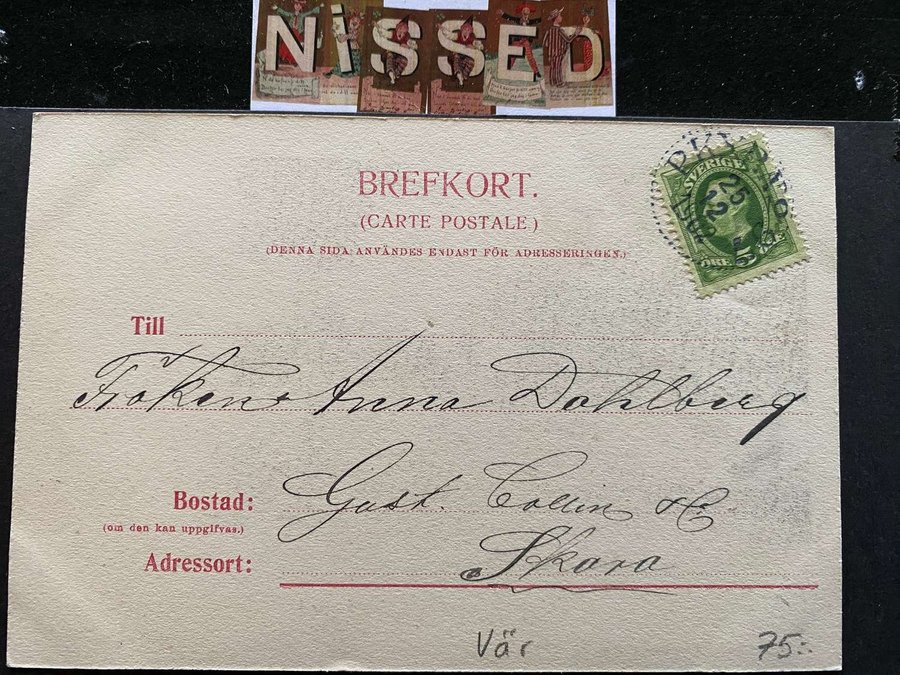 NISSED
BREFKORT.
(CARTE POSTALE.)
(DENNA SIDA ANVÄNDES ENDAST FÖR ADRESSERINGEN.)
SVERIGE
25
12
ÖRE 5 ÖRE
PKXP
Till
Fröken Anna Dahlberg
Bostad:
Gust. Collin & C:
(om den kan uppgifvas.)
Adressort:
Skara
Vär
75:-